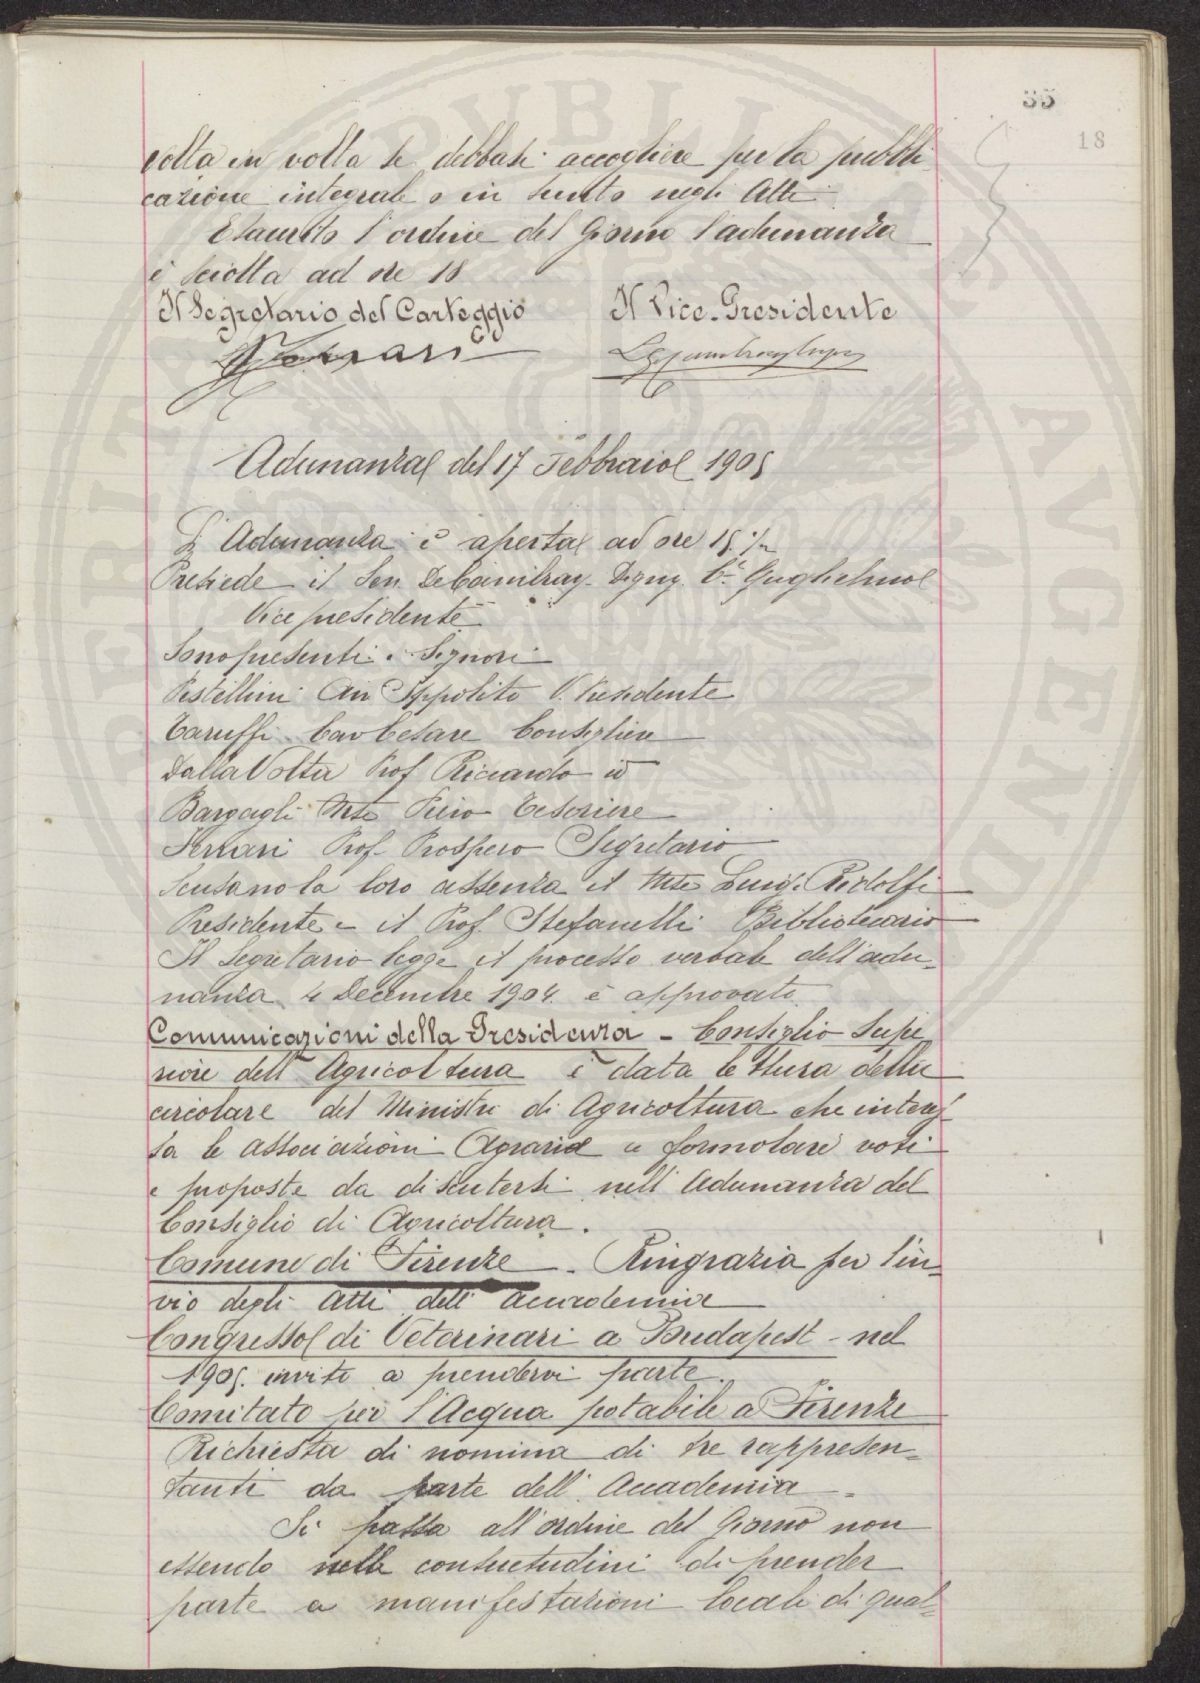 35
18
volta in volta se debbasi accogliere per la pubbli
cazione integrale o in sunto negli Atti
Esaurito l'ordine del Giorno l'adunanza
è sciolta ad ore 18
Il Segretario del Carteggio Il Vice-Presidente
Ferrari
Adunanza del 17 Febbraio 1905
L'Adunanza è aperta ad ore 15 ½
Presiede il Sen. De Cambray-Digny Cte Guglielmo
Vice presidente
Sono presenti i Signori
Pestellini Avv Ippolito V. Presidente
Taruffi Cav Cesare Consigliere
Dalla Volta Prof Riccardo id
Bargagli Mse Piero Tesoriere
Ferrari Prof. Prospero Segretario
Scusano la loro assenza il Mse Luigi Ridolfi
Presidente e il Prof. Stefanelli Bibliotecario
Il Segretario legge il processo verbale dell'adu-
nanza 4 Decembre 1904. è approvato
Comunicazioni della Presidenza - Consiglio Supe
riore dell'Agricoltura è data lettura della
circolare del Ministro di Agricoltura che interes-
sa le associazioni Agrarie a formolare voti
e proposte da discutersi nell'adunanza del
Consiglio di Agricoltura.
Comune di Firenze - Ringrazia per l'in-
vio degli Atti dell'Accademia
Congresso di Veterinari a Budapest - nel
1905. invito a prendervi parte.
Comitato per l'Acqua potabile a Firenze
Richiesta di nomina di tre rappresen-
tanti da parte dell'Accademia -
Si passa all'ordine del Giorno non
essendo nelle consuetudini di prender
parte a manifestazioni locali di qual-